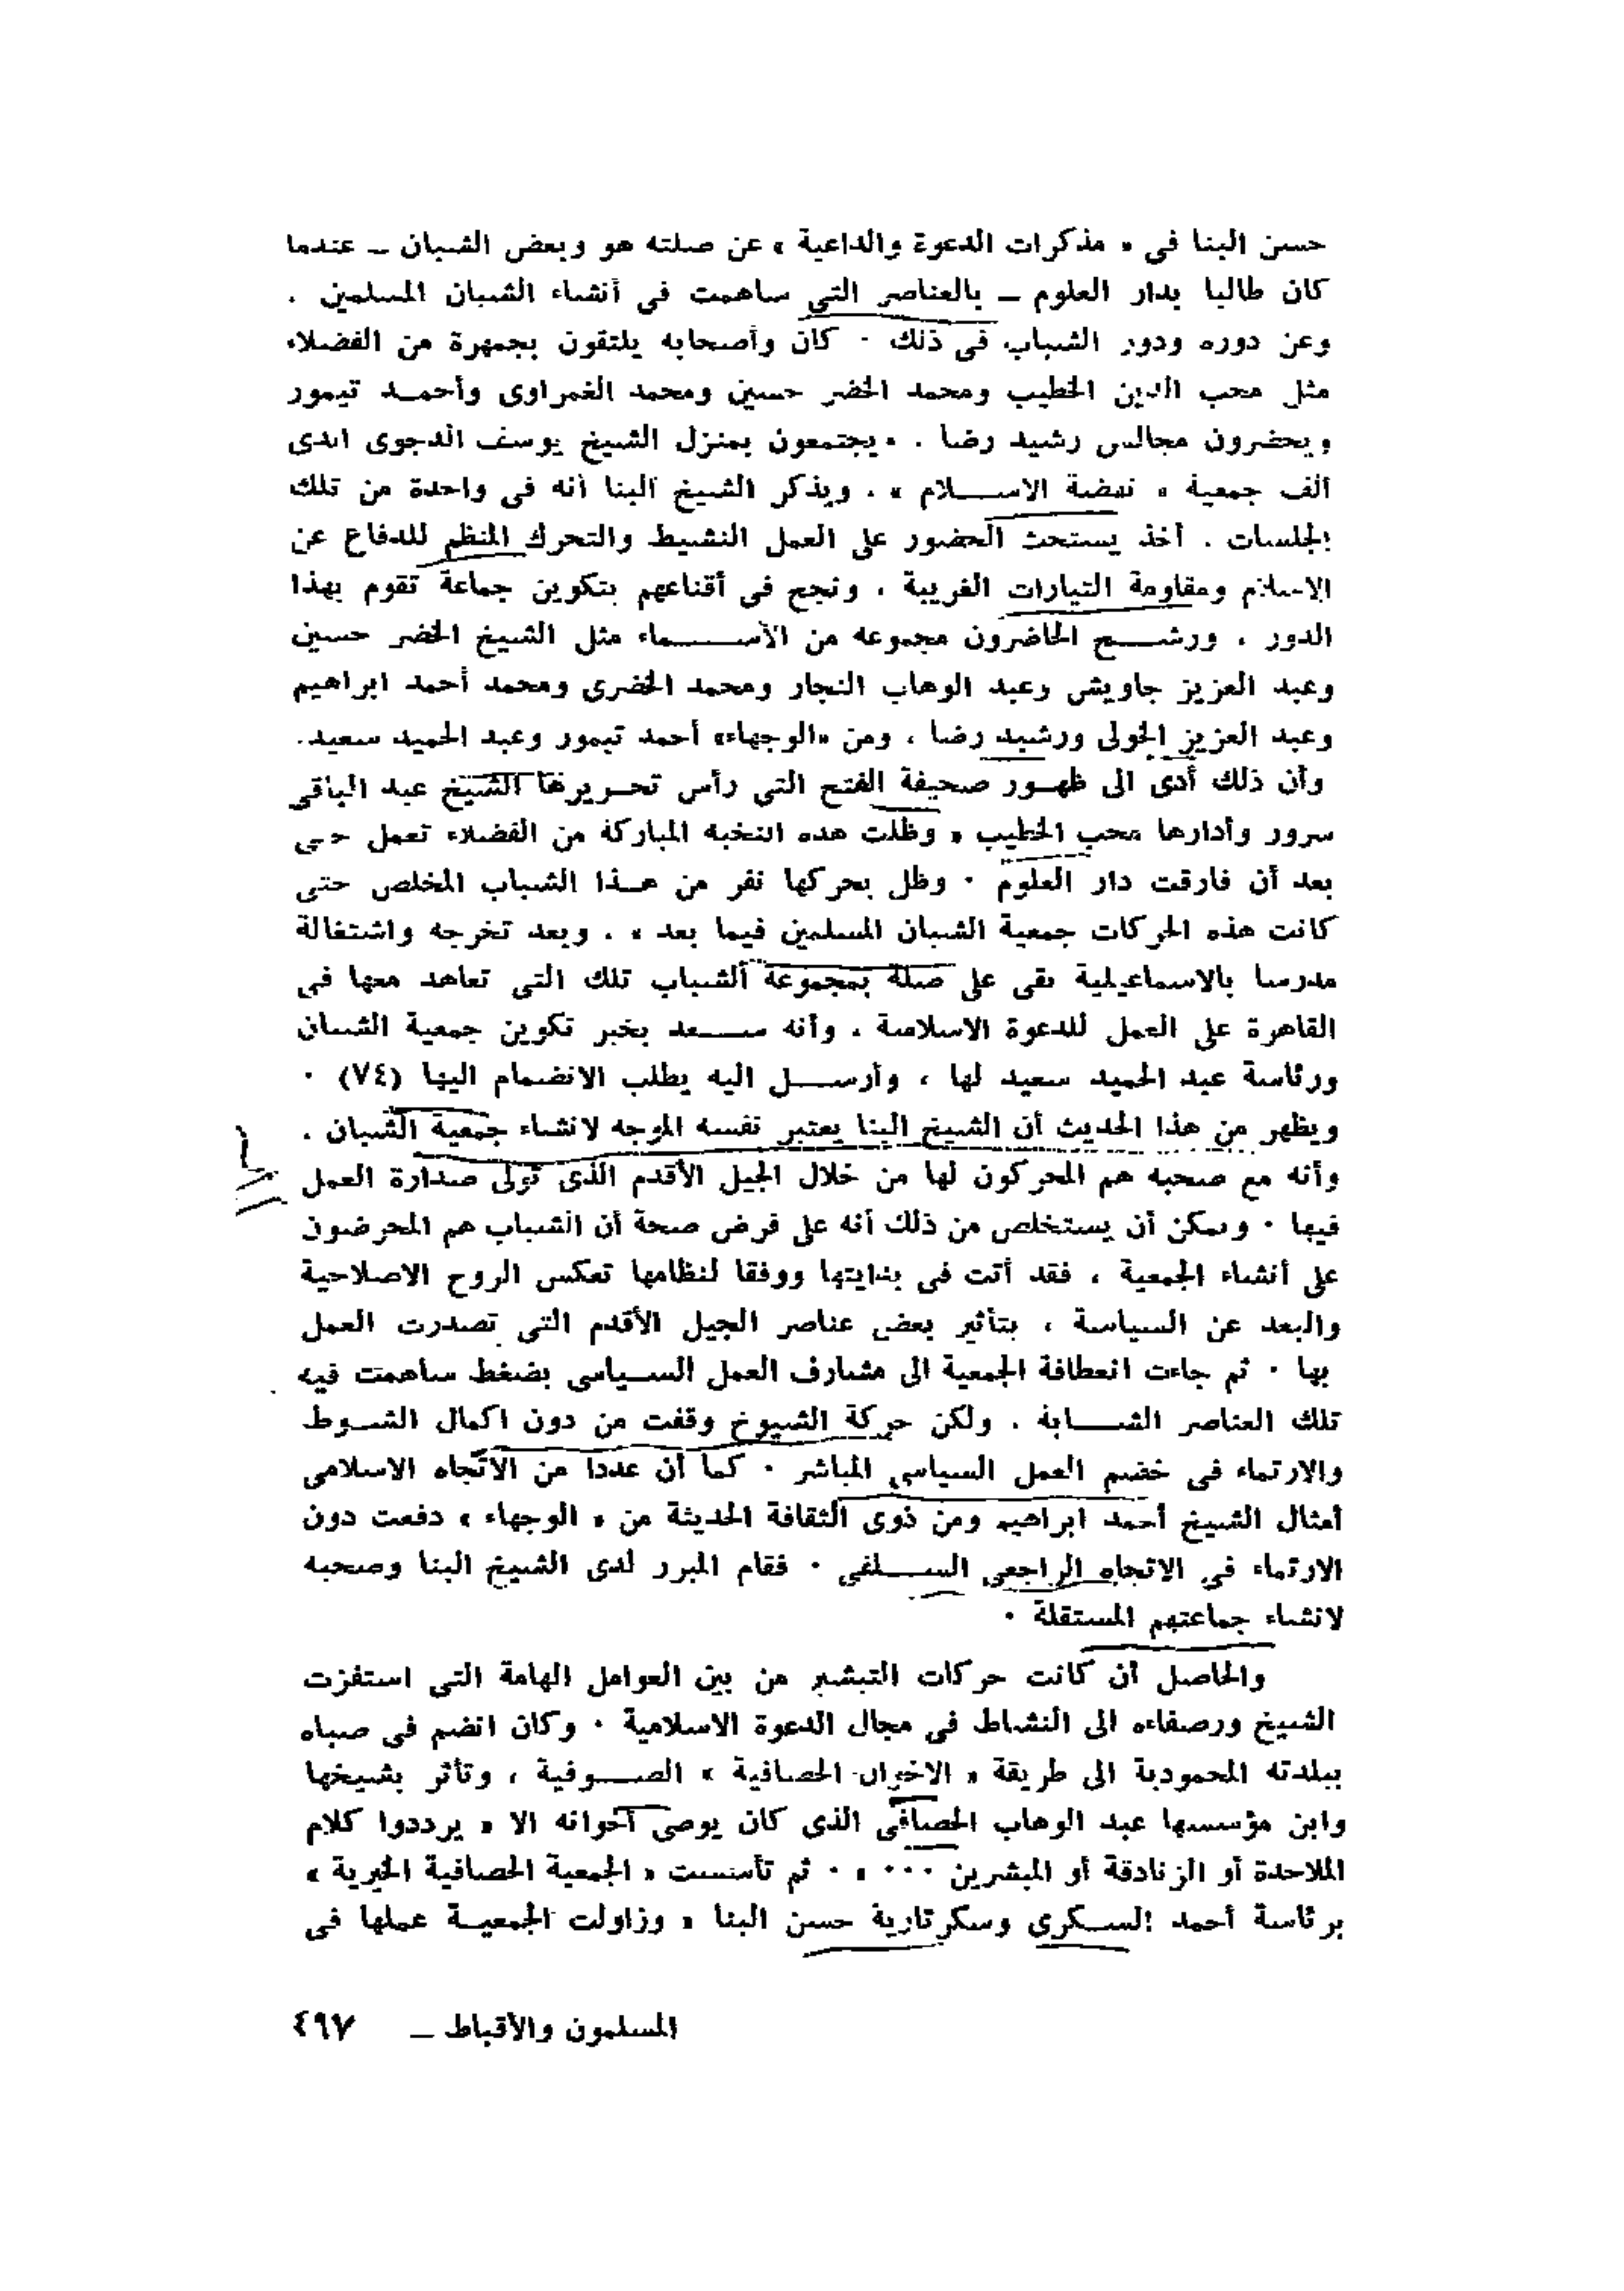 حسن البنا فى « مذكرات الدعوة والداعية » عن صلته هو وبعض الشبان ــ عندما
كان طالبا بدار العلوم ــ بالعناصر التى ساهمت فى أنشاء الشبان المسلمين .
وعن دوره ودور الشباب فى ذلك . كان وأصحابه يلتقون بجمهرة من الفضلاء
مثل محب الدين الخطيب ومحمد الخضر حسين ومحمد الغمراوى وأحمــد تيمور
ويحضرون مجالس رشيد رضا . ويجتمعون بمنزل الشيخ يوسف الدجوى الذى
ألف جمعية « نهضة الاســـلام » . ويذكر الشيخ البنا أنه فى واحدة من تلك
الجلسات . أخذ يستحث الحضور على العمل النشيط والتحرك المنظم للدفاع عن
الاسلام ومقاومة التيارات الغريبة ، ونجح فى أقناعهم بتكوين جماعة تقوم بهذا
الدور ، ورشـــح الحاضرون مجموعه من الأســـماء مثل الشيخ الخضر حسين
وعبد العزيز جاويش وعبد الوهاب النجار ومحمد الخضرى ومحمد أحمد ابراهيم
وعبد العزيز الخولى ورشيد رضا ، ومن «الوجهاء» أحمد تيمور وعبد الحميد سعيد.
وأن ذلك أدى الى ظهــور صحيفة الفتح التى رأس تحــريرها الشيخ عبد الباقى
سرور وأدارها محب الخطيب « وظلت هده النخبة المباركة من الفضلاء تعمل حتى
بعد أن فارقت دار العلوم . وظل يحركها نفر من هــذا الشباب المخلص حتى
كانت هذه الحركات جمعية الشبان المسلمين فيما بعد » . وبعد تخرجه واشتغالة
مدرسا بالاسماعيلية بقى على صلة بمجموعة الشباب تلك التى تعاهد معها فى
القاهرة على العمل للدعوة الاسلامية ، وأنه ســـعد بخبر تكوين جمعية الشبان
ورئاسة عبد الحميد سعيد لها ، وأرســـل اليه يطلب الانضمام اليها (٧٤) .
ويظهر من هذا الحديث أن الشيخ البنا يعتبر نفسه الموجه لانشاء جمعية الشبان .
وأنه مع صحبه هم المحركون لها من خلال الجيل الأقدم الذى تولى صدارة العمل
فيها . ويمكن أن يستخلص من ذلك أنه على فرض صحة أن الشباب هم المحرضون
على أنشاء الجمعية ، فقد أتت فى بدايتها ووفقا لنظامها تعكس الروح الاصلاحية
والبعد عن السياسة ، بتأثير بعض عناصر الجيل الأقدم التى تصدرت العمل
بها . ثم جاءت انعطافة الجمعية الى مشارف العمل الســياسى بضغط ساهمت فيه
تلك العناصر الشـــابة . ولكن حركة الشيوخ وقفت من دون اكمال الشــوط
والارتماء فى خضم العمل السياسى المباشر . كما أن عددا من الاتجاه الاسلامى
أمثال الشيخ أحمد ابراهيم ومن ذوى الثقافة الحديثة من « الوجهاء » دفعت دون
الارتماء فى الاتجاه الراجعى الســـلفى . فقام المبرر لدى الشيخ البنا وصحبه
لانشاء جماعتهم المستقلة .
والحاصل أن كانت حركات التبشير من بين العوامل الهامة التى استفزت
الشيخ ورصفاءه الى النشاط فى مجال الدعوة الاسلامية . وكان انضم فى صباه
ببلدته المحمودية الى طريقة « الاخوان الحصافية » الصــوفية ، وتأثر بشيخها
وابن مؤسسها عبد الوهاب الحصافى الذى كان يوصى أخوانه الا « يرددوا كلام
الملاحدة أو الزنادقة أو المبشرين ٠٠٠ » . ثم تأسست « الجمعية الحصافية الخيرية »
برئاسة أحمد السكرى وسكرتارية حسن البنا « وزاولت الجمعيــة عملها فى
المسلمون والأقباط ــ ٤٩٧